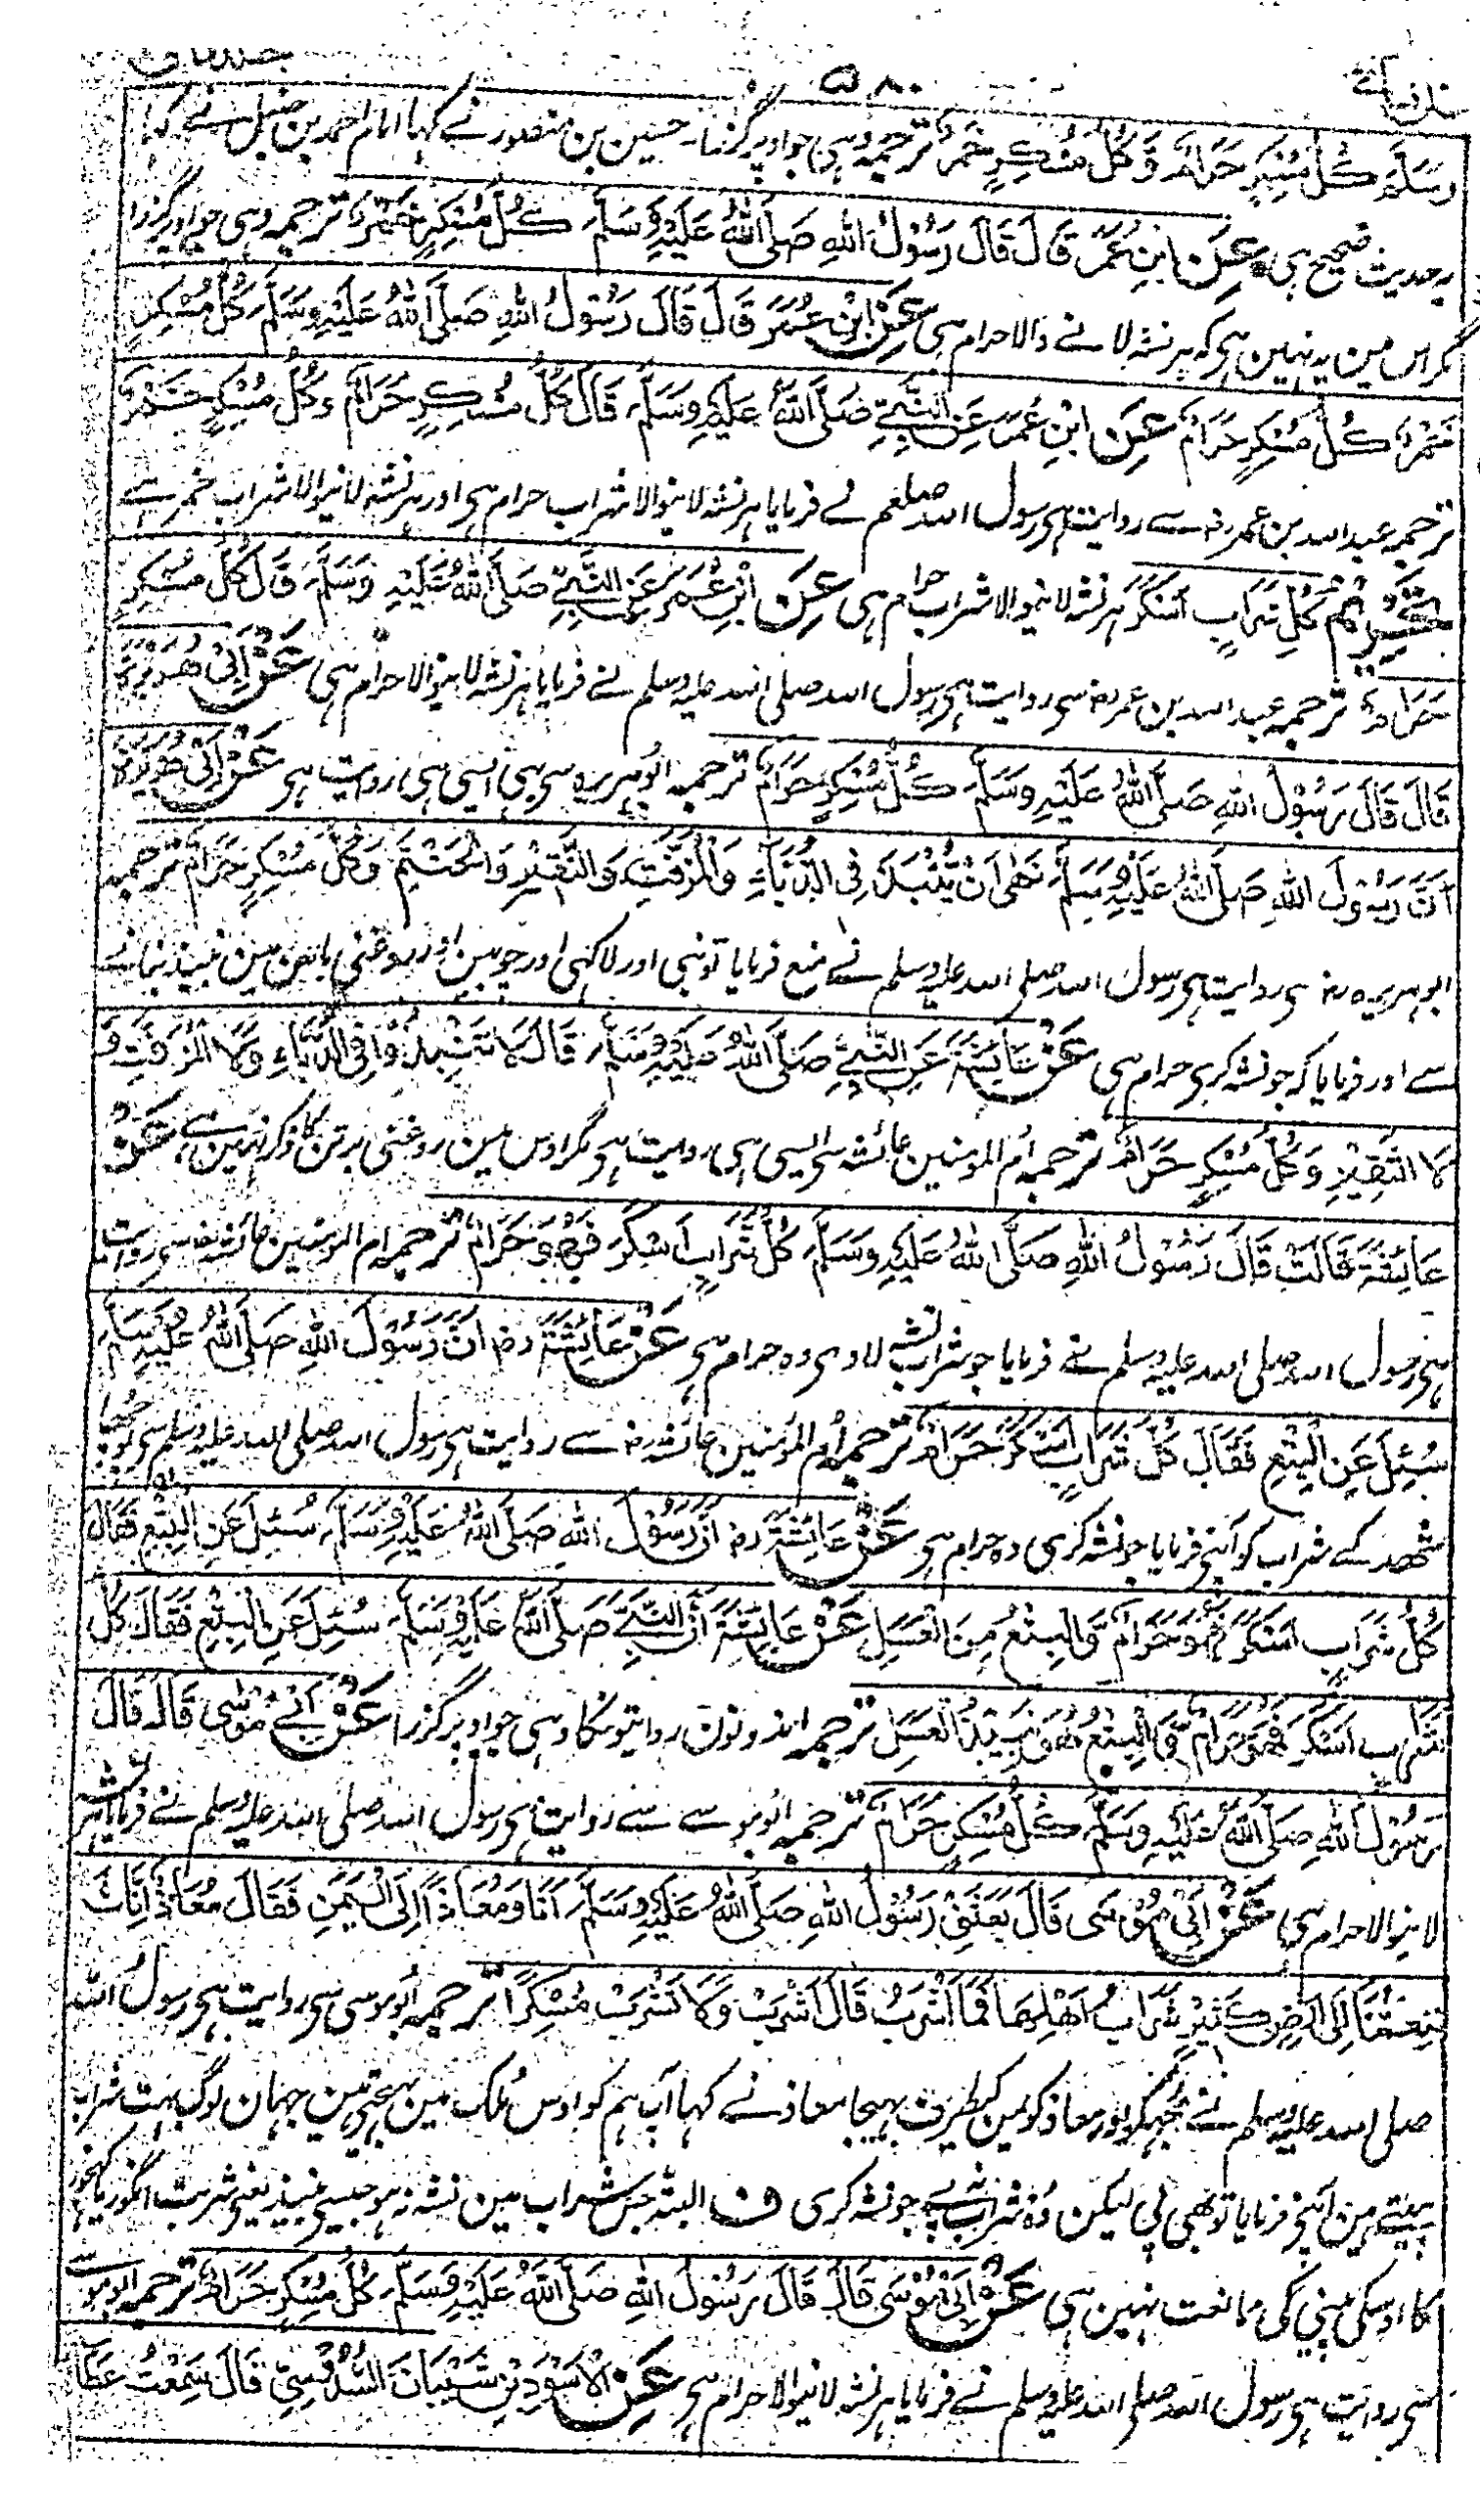 ۵۸۰
وَسَلَّمَ كُلُّ مُسْكِرٍ حَرَامٌ وَكُلُّ مُسْكِرٍ خَمْرٌ ترجمہ وہی جو اوپر گزرا۔ حسین بن منصور نے کہا امام احمد بن حنبل نے کہا
یہ حدیث صحیح ہی عَنِ ابْنِ عُمَرَ قَالَ قَالَ رَسُوْلُ اللهِ صَلَّى اللهُ عَلَيْهِ وَسَلَّمَ كُلُّ مُسْكِرٍ خَمْرٌ ترجمہ وہی جو اوپر گزرا
مگر اس مین یہ نہین ہی کہ ہر نشہ لانے والا حرام ہی عَنِ ابْنِ عُمَرَ قَالَ قَالَ رَسُوْلُ اللهِ صَلَّى اللهُ عَلَيْهِ وَسَلَّمَ كُلُّ مُسْكِرٍ
خَمْرٌ كُلُّ مُسْكِرٍ حَرَامٌ عَنِ ابْنِ عُمَرَ عَنِ النَّبِيِّ صَلَّى اللهُ عَلَيْهِ وَسَلَّمَ قَالَ كُلُّ مُسْكِرٍ حَرَامٌ وَكُلُّ مُسْكِرٍ خَمْرٌ
ترجمہ عبد اللہ بن عمر رض سے روایت ہی رسول اللہ صلعم نے فرمایا ہر نشہ لانیوالا شراب حرام ہی اور ہر نشہ لانیوالا شراب خمر ہے
تَحْرِيْمُ كُلِّ شَرَابٍ اَسْكَرَ ہر نشہ لانیوالا شراب حرام ہی عَنِ ابْنِ عُمَرَ عَنِ النَّبِيِّ صَلَّى اللهُ عَلَيْهِ وَسَلَّمَ قَالَ كُلُّ مُسْكِرٍ
حَرَامٌ ترجمہ عبد اللہ بن عمر رض سی روایت ہی رسول اللہ صلی اللہ علیہ وسلم نے فرمایا ہر نشہ لانیوالا حرام ہی عَنْ اَبِيْ هُرَيْرَةَ
قَالَ قَالَ رَسُوْلُ اللهِ صَلَّى اللهُ عَلَيْهِ وَسَلَّمَ كُلُّ مُسْكِرٍ حَرَامٌ ترجمہ ابو ہریرہ سی بہی ایسی ہی روایت ہی عَنْ اَبِيْ هُرَيْرَةَ
اَنَّ رَسُوْلَ اللهِ صَلَّى اللهُ عَلَيْهِ وَسَلَّمَ نَهٰى اَنْ يُنْبَذَ فِي الدُّبَّاءِ وَالْمُزَفَّتِ وَالنَّقِيْرِ وَالْحَنْتَمِ وَكُلُّ مُسْكِرٍ حَرَامٌ ترجمہ
ابو ہریرہ رض سی روایت ہی رسول اللہ صلی اللہ علیہ وسلم نے منع فرمایا تونبی اور لاکہی اور چوبین اور روغنی باسن مین نبیذ بنانے
سے اور فرمایا کہ جو نشہ کری حرام ہی عَنْ عَائِشَةَ عَنِ النَّبِيِّ صَلَّى اللهُ عَلَيْهِ وَسَلَّمَ قَالَ لَا تَنْبِذُوْا فِي الدُّبَّاءِ وَلَا الْمُزَفَّتِ وَ
لَا النَّقِيْرِ وَكُلُّ مُسْكِرٍ حَرَامٌ ترجمہ ام المومنین عائشہ سی ایسی ہی روایت ہی مگر اوس مین روغنی برتن کا ذکر نہین ہے عَنْ
عَائِشَةَ قَالَتْ قَالَ رَسُوْلُ اللهِ صَلَّى اللهُ عَلَيْهِ وَسَلَّمَ كُلُّ شَرَابٍ اَسْكَرَ فَهُوَ حَرَامٌ ترجمہ ام المومنین عائشہ رض سی روایت
ہی رسول اللہ صلی اللہ علیہ وسلم نے فرمایا جو شراب نشہ لاوی وہ حرام ہی عَنْ عَائِشَةَ رض اَنَّ رَسُوْلَ اللهِ صَلَّى اللهُ عَلَيْهِ وَسَلَّمَ
سُئِلَ عَنِ الْبِتْعِ فَقَالَ كُلُّ شَرَابٍ اَسْكَرَ حَرَامٌ ترجمہ ام المومنین عائشہ رض سے روایت ہی رسول اللہ صلی اللہ علیہ وسلم سی پوچہا
شہد کے شراب کو آپنے فرمایا جو نشہ کری وہ حرام ہی عَنْ عَائِشَةَ رض اَنَّ رَسُوْلَ اللهِ صَلَّى اللهُ عَلَيْهِ وَسَلَّمَ سُئِلَ عَنِ الْبِتْعِ فَقَالَ
كُلُّ شَرَابٍ اَسْكَرَ فَهُوَ حَرَامٌ وَالْبِتْعُ مِنَ الْعَسَلِ عَنْ عَائِشَةَ اَنَّ النَّبِيَّ صَلَّى اللهُ عَلَيْهِ وَسَلَّمَ سُئِلَ عَنِ الْبِتْعِ فَقَالَ كُلُّ
شَرَابٍ اَسْكَرَ فَهُوَ حَرَامٌ وَالْبِتْعُ هُوَ نَبِيْذُ الْعَسَلِ ترجمہ ان دونون روایتونکا وہی جو اوپر گزرا عَنْ اَبِيْ مُوْسٰى قَالَ قَالَ
رَسُوْلُ اللهِ صَلَّى اللهُ عَلَيْهِ وَسَلَّمَ كُلُّ مُسْكِرٍ حَرَامٌ ترجمہ ابو موسے سے روایت ہی رسول اللہ صلی اللہ علیہ وسلم نے فرمایا ہر نشہ
لانیوالا حرام ہی عَنْ اَبِيْ مُوْسٰى قَالَ بَعَثَنِيْ رَسُوْلُ اللهِ صَلَّى اللهُ عَلَيْهِ وَسَلَّمَ اَنَا وَمُعَاذًا اِلَى الْيَمَنِ فَقَالَ مُعَاذٌ اِنَّكَ
تَبْعَثُنَا اِلٰى اَرْضٍ كَثِيْرٌ شَرَابُ اَهْلِهَا فَمَا اَشْرَبُ قَالَ اشْرَبْ وَلَا تَشْرَبْ مُسْكِرًا ترجمہ ابو موسی سی روایت ہی رسول اللہ
صلی اللہ علیہ وسلم نے مجہکو اور معاذ کو یمن کیطرف بہیجا معاذ نے کہا آپ ہم کو اوس ملک مین بہیجتی ہین جہان لوگ بہت شراب
پیتے ہین آپنے فرمایا تو بھی پی لیکن وہ شراب نہ پی جو نشہ کری ف البتہ جس شراب مین نشہ نہ ہو جیسی نبیذ یعنی شربت انگور یا کہجور
کا اوسکی پینی کی ممانعت نہین ہی عَنْ اَبِيْ مُوْسٰى قَالَ قَالَ رَسُوْلُ اللهِ صَلَّى اللهُ عَلَيْهِ وَسَلَّمَ كُلُّ مُسْكِرٍ حَرَامٌ ترجمہ ابو موسے
سی روایت ہی رسول اللہ صلی اللہ علیہ وسلم نے فرمایا ہر نشہ لانیوالا حرام ہی عَنِ الْاَسْوَدِ بْنِ شَيْبَانَ السَّدُوْسِيِّ قَالَ سَمِعْتُ عَطَاءً